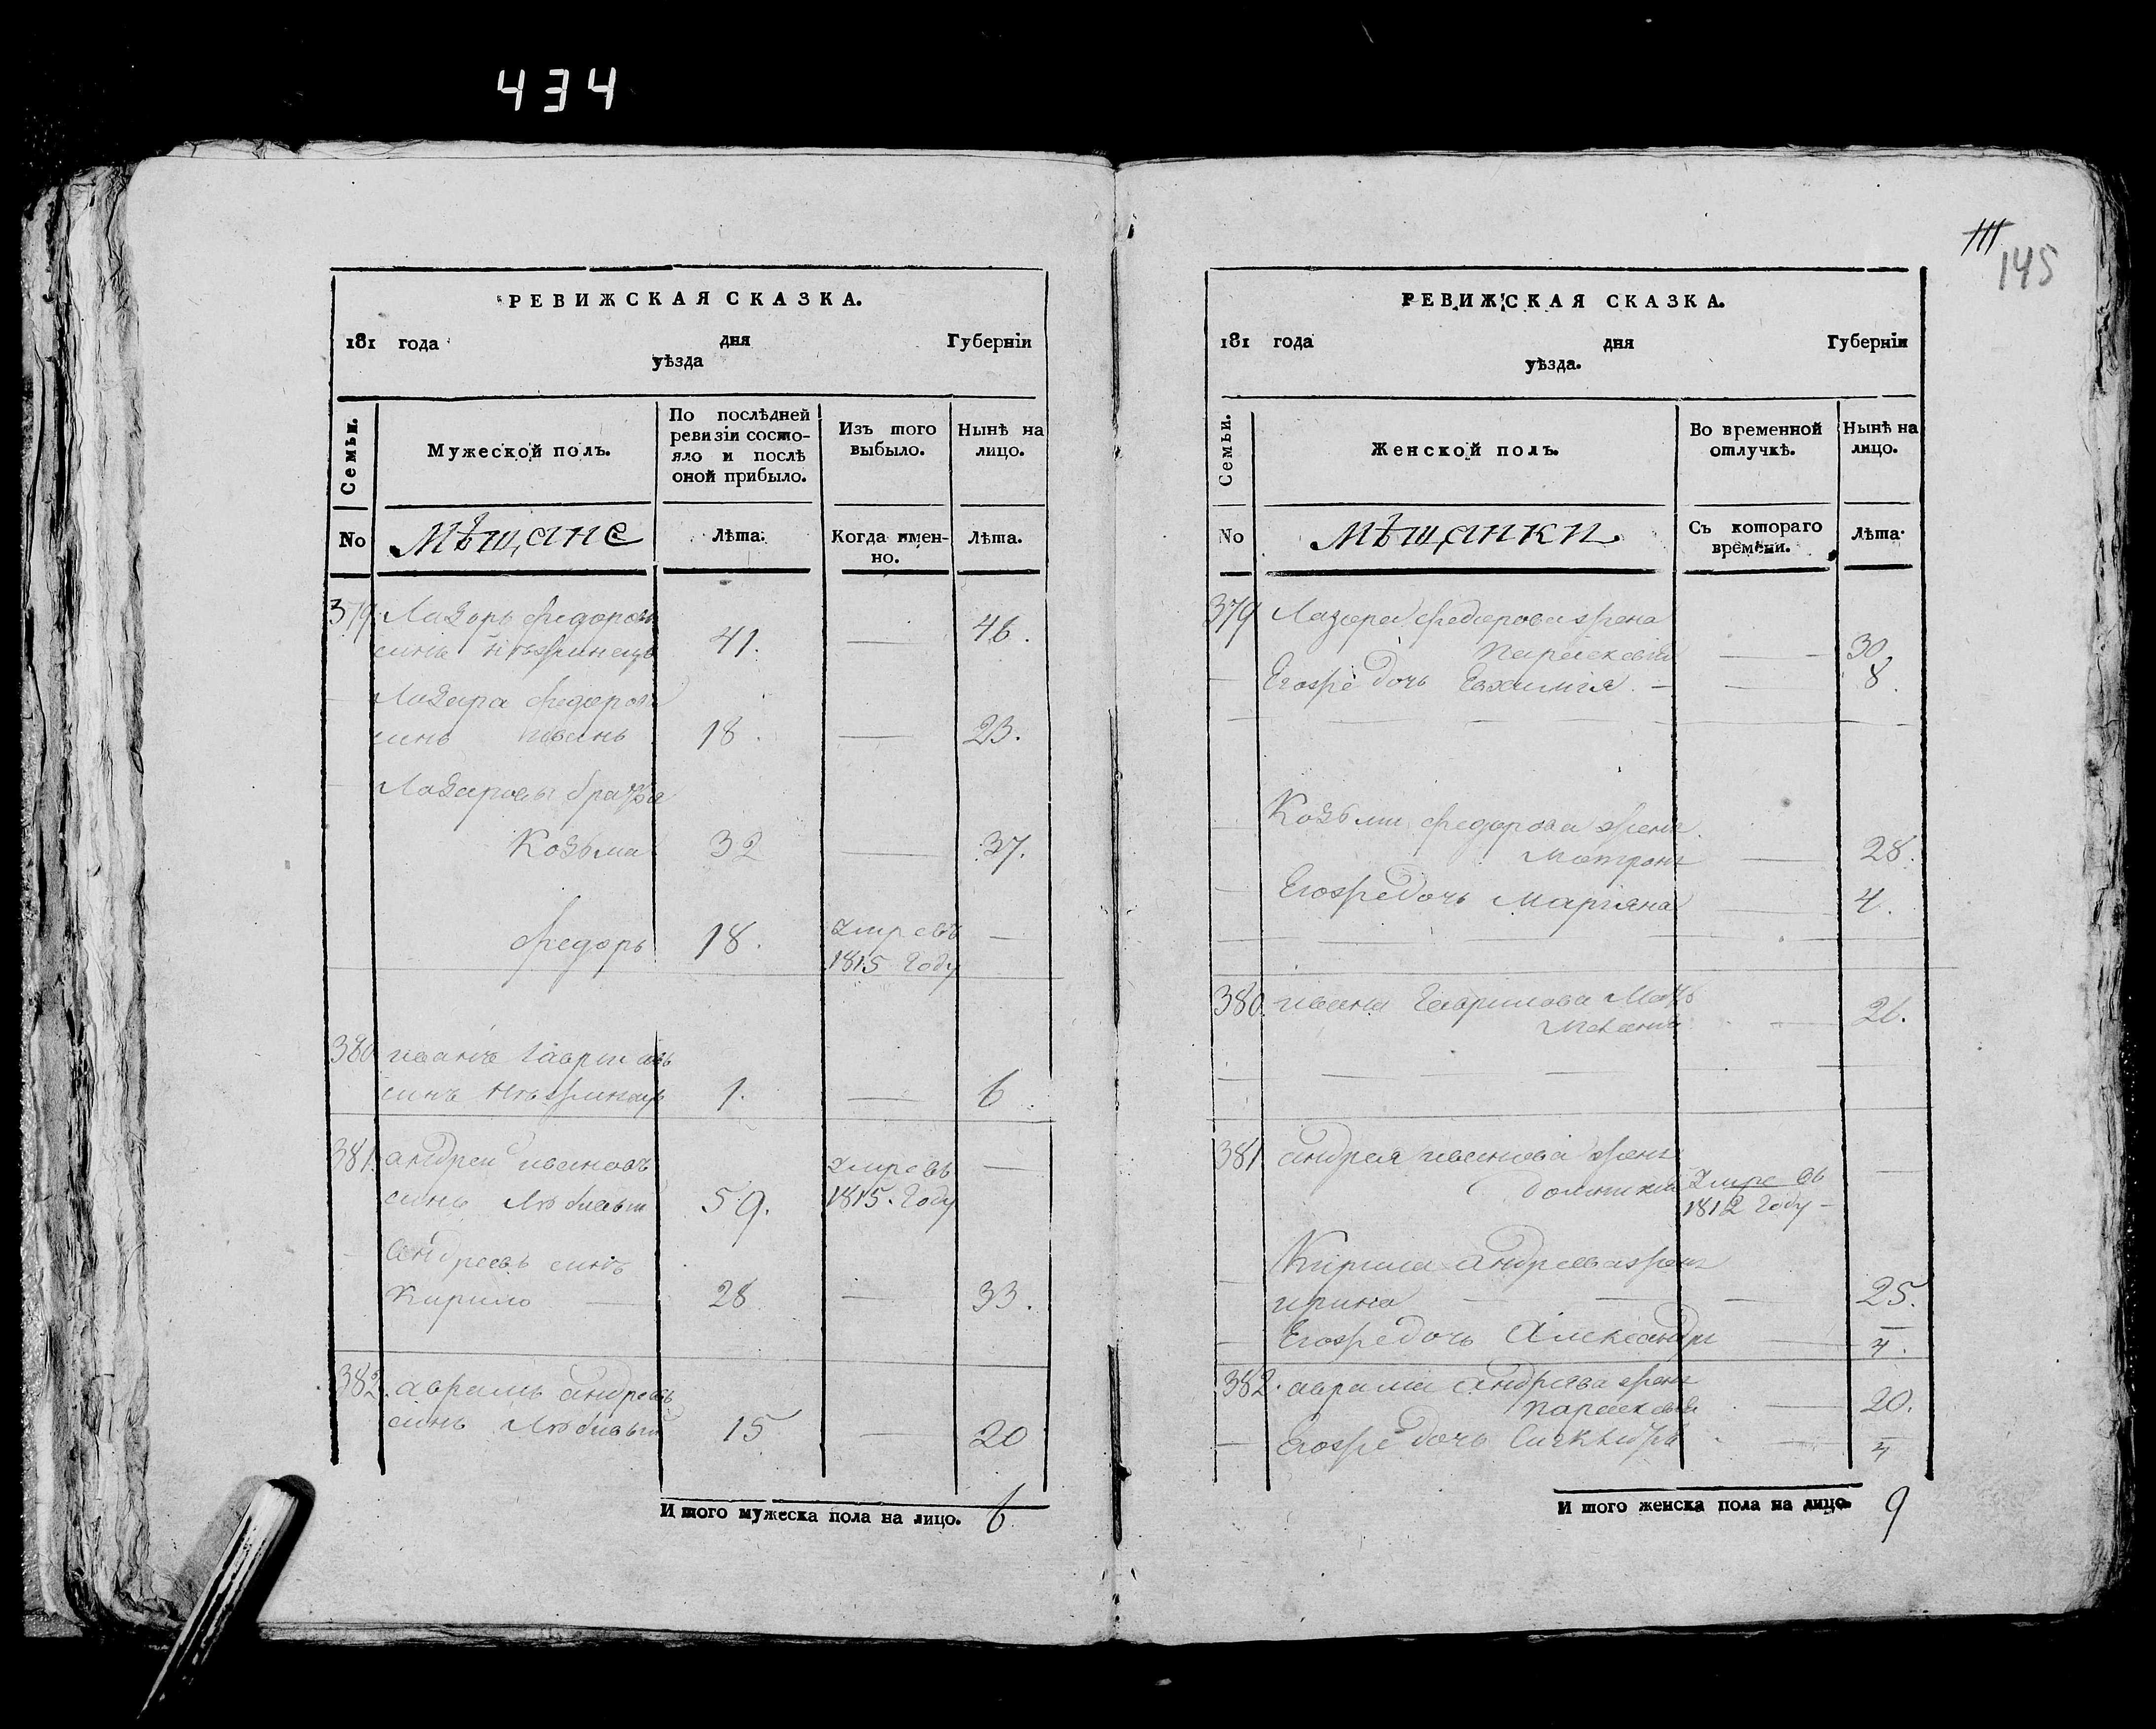 434
РЕВИЖСКАЯ СКАЗКА.
181 года дня Губерніи
уѣзда
Семьи.
Мужеской полъ.
По послѣдней ревизіи состо-
яло и послѣ оной прибыло.
Изъ того выбыло.
Нынѣ на лицо.
No
Мѣщане
Лѣта:
Когда имен-
но.
Лѣта.
379 Лазоръ Федоровъ
синъ Нѣжинецъ 41. — 46.
Лазара Федорова
синъ иванъ 18. — 23.
Лазаровы братья
Козьма 32 — 37.
Федоръ 18. умре въ —
1815 Году
380 иванъ Гавриловъ
синъ Нѣжинецъ 1. — 6
381. андрей ивановъ умре въ —
синъ 59. 1815. Году
Андреевъ синъ
Кирило — 28 — 33.
382. аврамъ андреевъ
синъ 15 — 20
И того мужеска пола на лицо. 6
111
145
РЕВИЖСКАЯ СКАЗКА.
181 года дня Губерніи
уѣзда.
Семьи.
Женской полъ.
Во временной отлучкѣ.
Нынѣ на лицо.
No
Мѣщанки.
Съ котораго
времени.
Лѣта:
379 Лазора Федорова жена
Параскевія — 30.
Егоже дочь Евхимія. — 8.
Козьми Федорова жена
Матрона — 28.
Егоже дочь Маріяна — 4.
380. ивана Гаврилова Мать
— 26.
381 андрея иванова жена
умре въ —
1812 Году —
Кирила андреева жена
ирина — 25.
Егоже дочь Александра — 4.
382. аврама андреева жена
Параскевія — 20.
Егоже дочь — 4
И того женска пола на лицо. 9